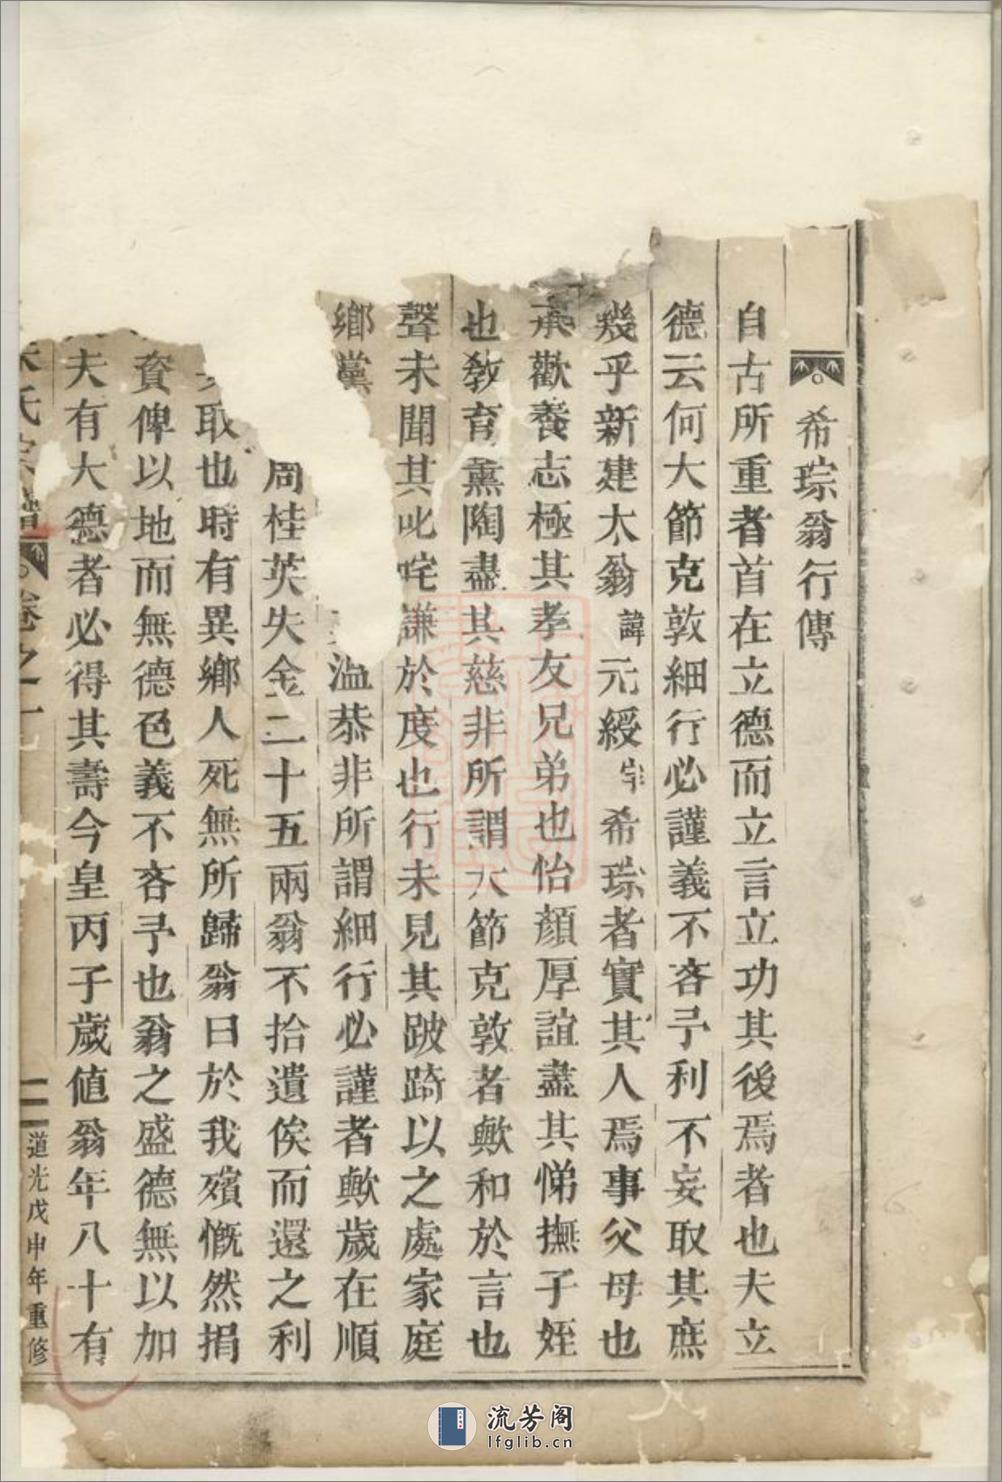 希琮翁行傳
自古所重者首在立德而立言立功其後焉者也夫立
德云何大節克敦細行必謹義不吝予利不妄取其庶
幾乎新建太翁諱元綬字希琮者實其人焉事父母也
承歡養志極其孝友兄弟也怡顏厚誼盡其悌撫子姪
也教育薰陶盡其慈非所謂大節克敦者歟和於言也
聲未聞其叱咤謙於度也行未見其跛踦以之處家庭
鄉黨溢恭非所謂細行必謹者歟歲在順
周桂英失金二十五兩翁不拾遺俟而還之利
取也時有異鄉人死無所歸翁曰於我殯慨然捐
資俾以地而無德色義不吝予也翁之盛德無以加
夫有大德者必得其壽今皇丙子歲值翁年八十有
氏宗譜 卷之十 二 道光戊申年重修
流芳阁
lfglib.cn